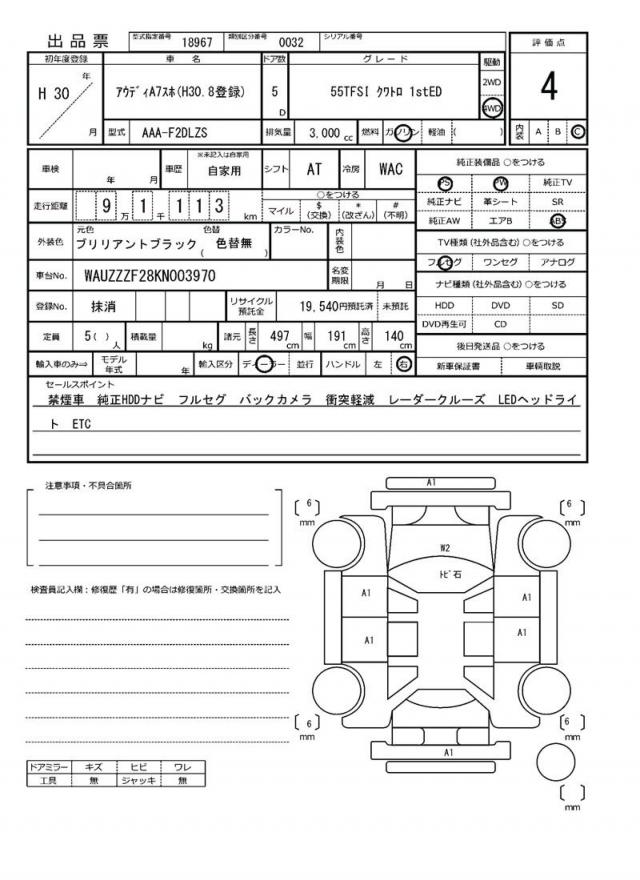 出品票 型式指定番号 18967 類別区分番号 0032 シリアル番号
初年度登録 車名 ドア数 グレード 駆動 評価点
H 30 年 月 アウディA7スポ(H30.8登録) 5 D 55TFSI クワトロ 1stED 2WD 4WD 4
型式 AAA-F2DLZS 排気量 3,000 cc 燃料 ガソリン 軽油 ( ) 内装 A B C
車検 年 月 車歴 ※未記入は自家用 自家用 シフト AT 冷房 WAC 純正装備品 ○をつける
PS PW 純正TV
走行距離 9 万 1 千 1 1 3 km ○をつける マイル $ (交換) * (改ざん) # (不明) 純正ナビ 革シート SR
純正AW エアB ABS
外装色 元色 ブリリアントブラック 色替 ( 色替無 ) カラーNo. 内装色 TV種類 (社外品含む) ○をつける
フルセグ ワンセグ アナログ
車台No. WAUZZZF28KN003970 名変期限 月 日 ナビ種類 (社外品含む) ○をつける
登録No. 抹消 リサイクル預託金 19,540円預託済 未預託 HDD DVD SD
DVD再生可 CD
定員 5( ) 人 積載量 kg 諸元 長さ 497 cm 幅 191 cm 高さ 140 cm 後日発送品 ○をつける
輸入車のみ⇒ モデル年式 年 輸入区分 ディーラー 並行 ハンドル 左 右 新車保証書 車輌取説
セールスポイント
禁煙車 純正HDDナビ フルセグ バックカメラ 衝突軽減 レーダークルーズ LEDヘッドライ
ト ETC
注意事項・不具合箇所
検査員記入欄:修復歴「有」の場合は修復箇所・交換箇所を記入
A1
6 mm
6 mm
W2
トビ石
A1
A1
A1
A1
6 mm
6 mm
A1
mm
ドアミラー キズ ヒビ ワレ
工具 無 ジャッキ 無